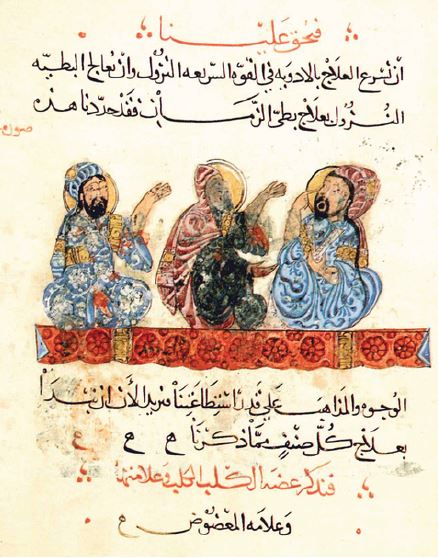 فحق علينا
ان نسرع العلاج بالادويه في القوه السريعه النزول وان نعالج البطيه
النزول بعلاج بطئ الزمان فقد حددنا هذه
صوره
الوجوه والمذاهب على قدر استطاعتنا ونريد الأن ان نبدأ
بعلاج كل صنف مما ذكرنا
فنذكر عضه الكلب الكلب وعلامتها
وعلامه المعضوض